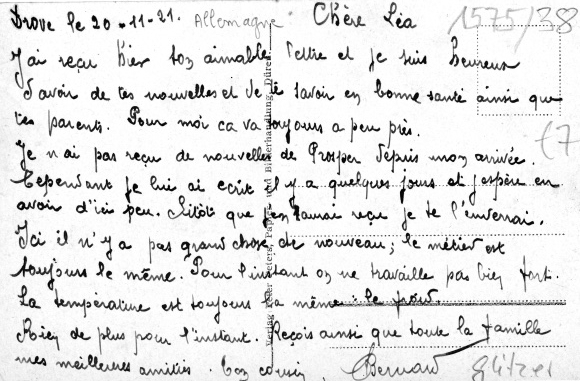 Drove le 20-11-21. Allemagne Chère Léa 1575/38
J'ai reçu hier ton aimable lettre et je suis heureux
d'avoir de tes nouvelles et de te savoir en bonne santé ainsi que
tes parents. Pour moi ca va toujours a peu près.
€7
Je n'ai pas reçu de nouvelles de Prosper depuis mon arrivée.
Cependant je lui ai ecrit il y a quelques jours et j'espère en
avoir d'ici peu. Sitôt que j'en aurai reçu je te l'enverrai.
Ici il n'y a pas grand chose de nouveau; le métier est
toujours le même. Pour l'instant on ne travaille pas bien fort.
La température est toujours la même : le froid.
Rien de plus pour l'instant. Reçois ainsi que toute la famille
mes meilleures amitiés. Ton cousin, Bernard
glitzer
Verlag Peter Papier- und Bilderhandlung, Düren